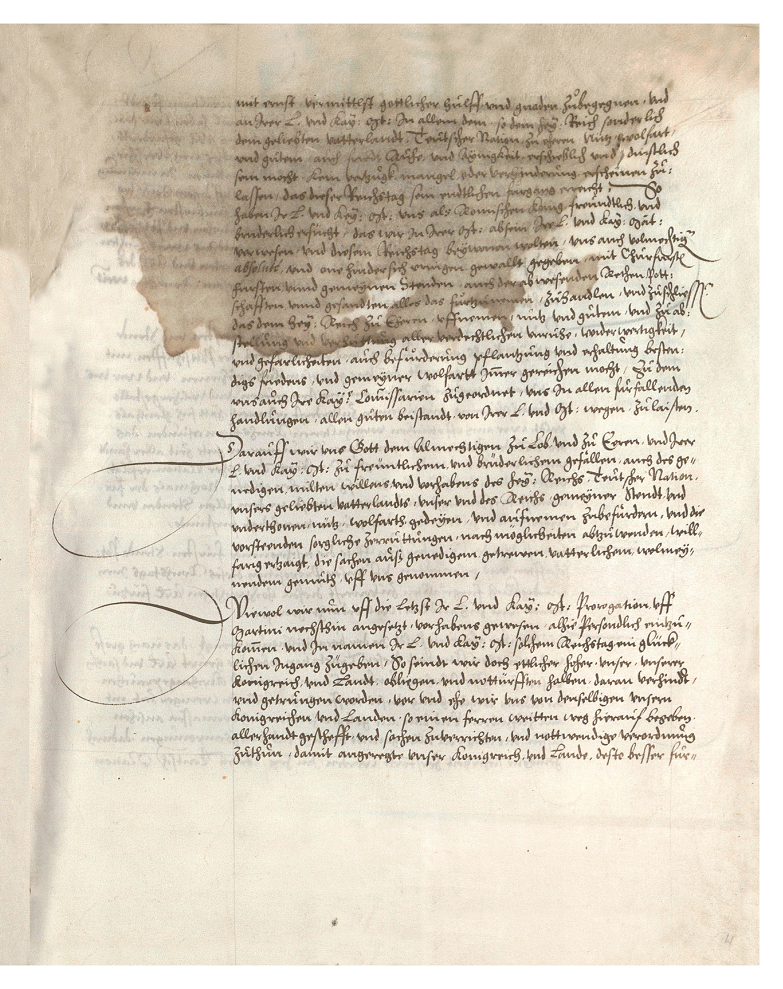 mit ernst, vermittlst gottlicher hülff vnd gnaden zübegegnen, vnd
an Irer L. vnd Kay: Mt: In allem dem, so dem hey: Reich sonderlich
dem geliebten vatterlandt Teutscher Nation zu eeren nutz, wolfart,
vnd gütem, auch Ruhe, vnd Aynigkeit erschießlich vnd dienstlich
sein mocht, kein vertzügk mangel, oder verhinderung erscheinen zü-
lassen, das dieser Reichstag sein endtlichen fürgang erreicht. So
haben Ir L. vnd Kay: Mt: vns als Romischen König freündtlich, vnd
brüderlich ersücht, das wir In Irer Mt: absein Ire L. vnd Kay: Mät:
verwesen, vnd diesem Reichstag beywonen wolten, vns auch volmechtig
absolute, vnd one hindersich eynigen gewallt gegeben, mit Churfürsten
fürsten vnnd gemeynen Stenden, auch der abwesenden Rethen, Pott-
schafften vnnd gesandten alles das fürtzünemen, zühandlen, vnd züschliessen
das dem hey: Reich zü Eeren, vffnemen, nütz vnd gütem, vnd zü ab-
stellung vnd verhuettung aller verderblichen vnrühe, widerwertigkeit,
vnd geferlicheiten, auch befürderung pflantzüng vnd erhaltüng besten-
digs friedens, vnd gemeyner wolfartt Immer gereichen mocht, Zü dem
vns auch Ire Kay: Commissarien zügeordnet, vns In allen fürfallenden
handlüngen, allen güten beistandt, von Irer L. vnd Mt: wegen, zülaisten.
Darauff wir vns Gott dem Almechtigen zü Lob, vnd zü Eeren, vnd Irer
L. vnd Kay: Mt: zü freüntlichem, vnd brüderlichem gefallen, auch des ge-
nedigen, milten willens, vnd vorhabens des hey: Reichs Teütscher Nation,
vnsers geliebten vatterlandts, vnser vnd des Reichs gemeyner Stendt vnd
vnderthonen, nütz, wolfarth, gedeyen, vnd aufnemen zübefürdern, vnd die
vorsteenden sorgliche zerrüttüngen, nach moglicheiten abzüwenden, will-
farig ertzaigt, die sachen auß genedigem, getrewen, vatterlichem, wolmey-
nendem gemüth, vff vns genommen,
Wiewol wir nün vff die Letzst Ir L. vnd Kay: Mt: Prorogation, vff
Martini nechsthin angesetzt, vorhabens gewesen, alhie Personlich eintzü-
kommen, vnd In namen Ir L. vnd Kay: Mt: solchem Reichstag ein glück-
lichen Ingang zügeben, So seindt wir doch ettlicher hoher, vnser, vnserer
Konigreich, vnd Landt, obligen, vnd notturfften halben, daran verhindt,
vnd getrüngen worden, vor vnd ehe wir vns von denselbigen vnsern
Konigreichen vnd Landen, so einen ferren weitten weg hierauf begeben,
allerhandt geschefft, vnd sachen züverrichten, vnd nottwendige verordnüng
züthün, damit angeregte vnser Konigreich, vnd Lande, desto besser für-